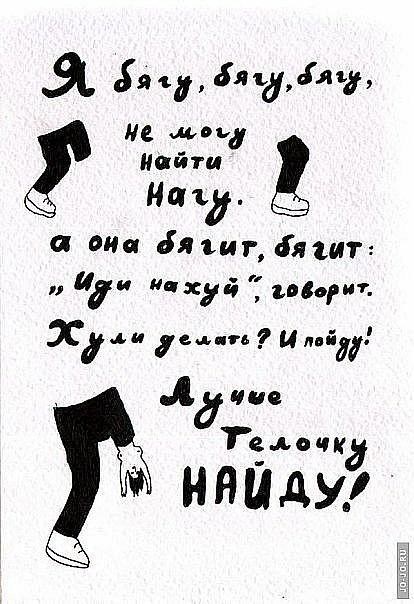 Я бягу, бягу, бягу,
не могу
найти
Нагу.
а она бягит, бягит:
„Иди нахуй", говорит.
Хули делать? И пойду!
Лучше
Телочку
НАЙДУ!
JO-JO.RU